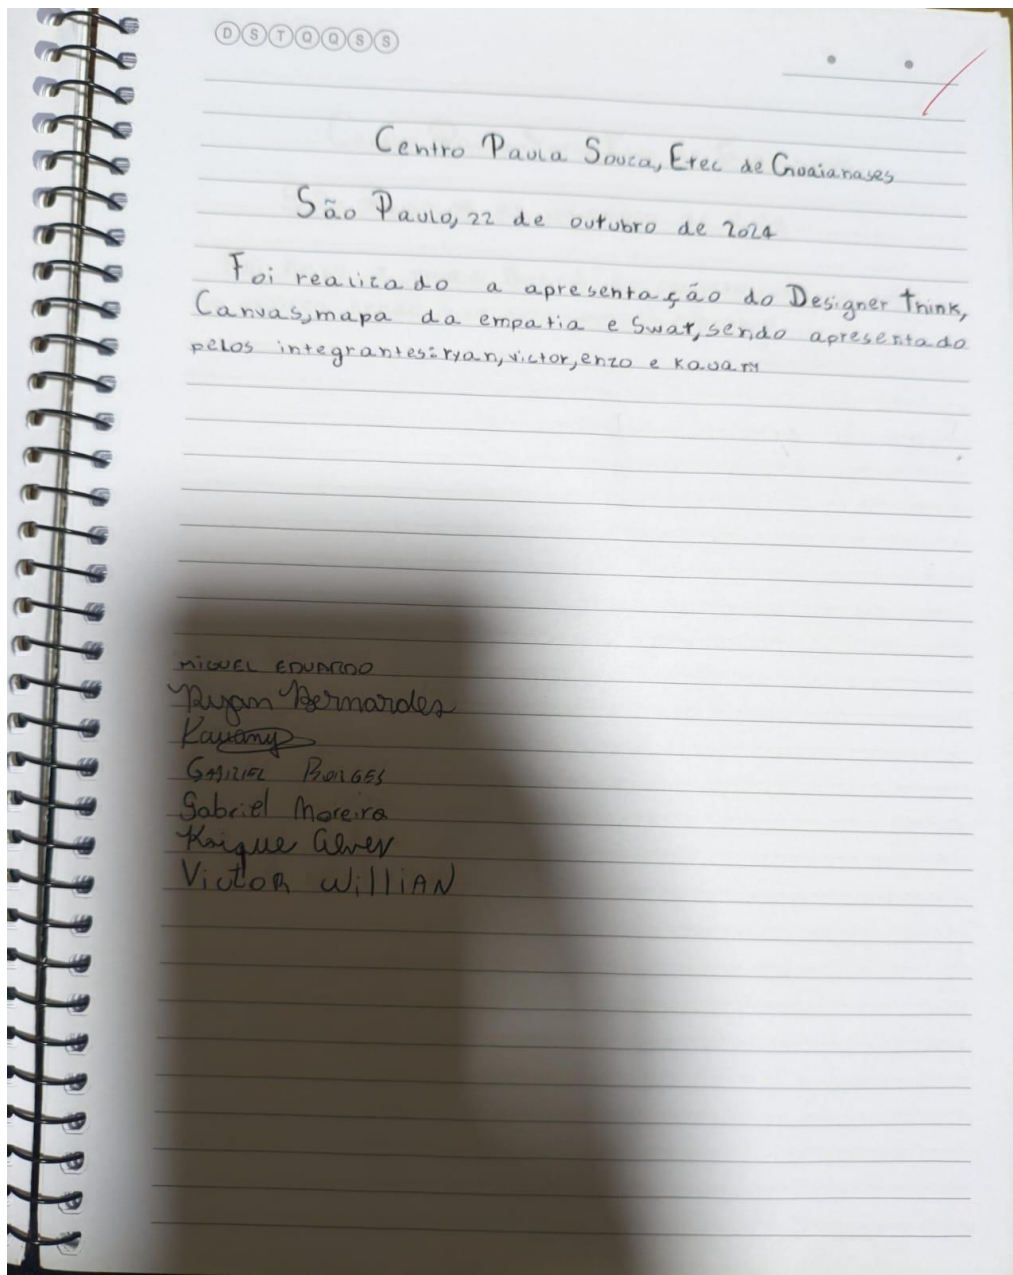 D S T Q Q S S
Centro Paula Souza, Etec de Guaianases
São Paulo, 22 de outubro de 2024
Foi realizado a apresentação do Designer Think,
Canvas, mapa da empatia e Swat, sendo apresentado
pelos integrantes: ryan, victor, enzo e Kauan
MIGUEL EDUARDO
Ryan Bernardes
Kauany
GABRIEL BORGES
Gabriel Moreira
Kaique Alves
Victor Willian